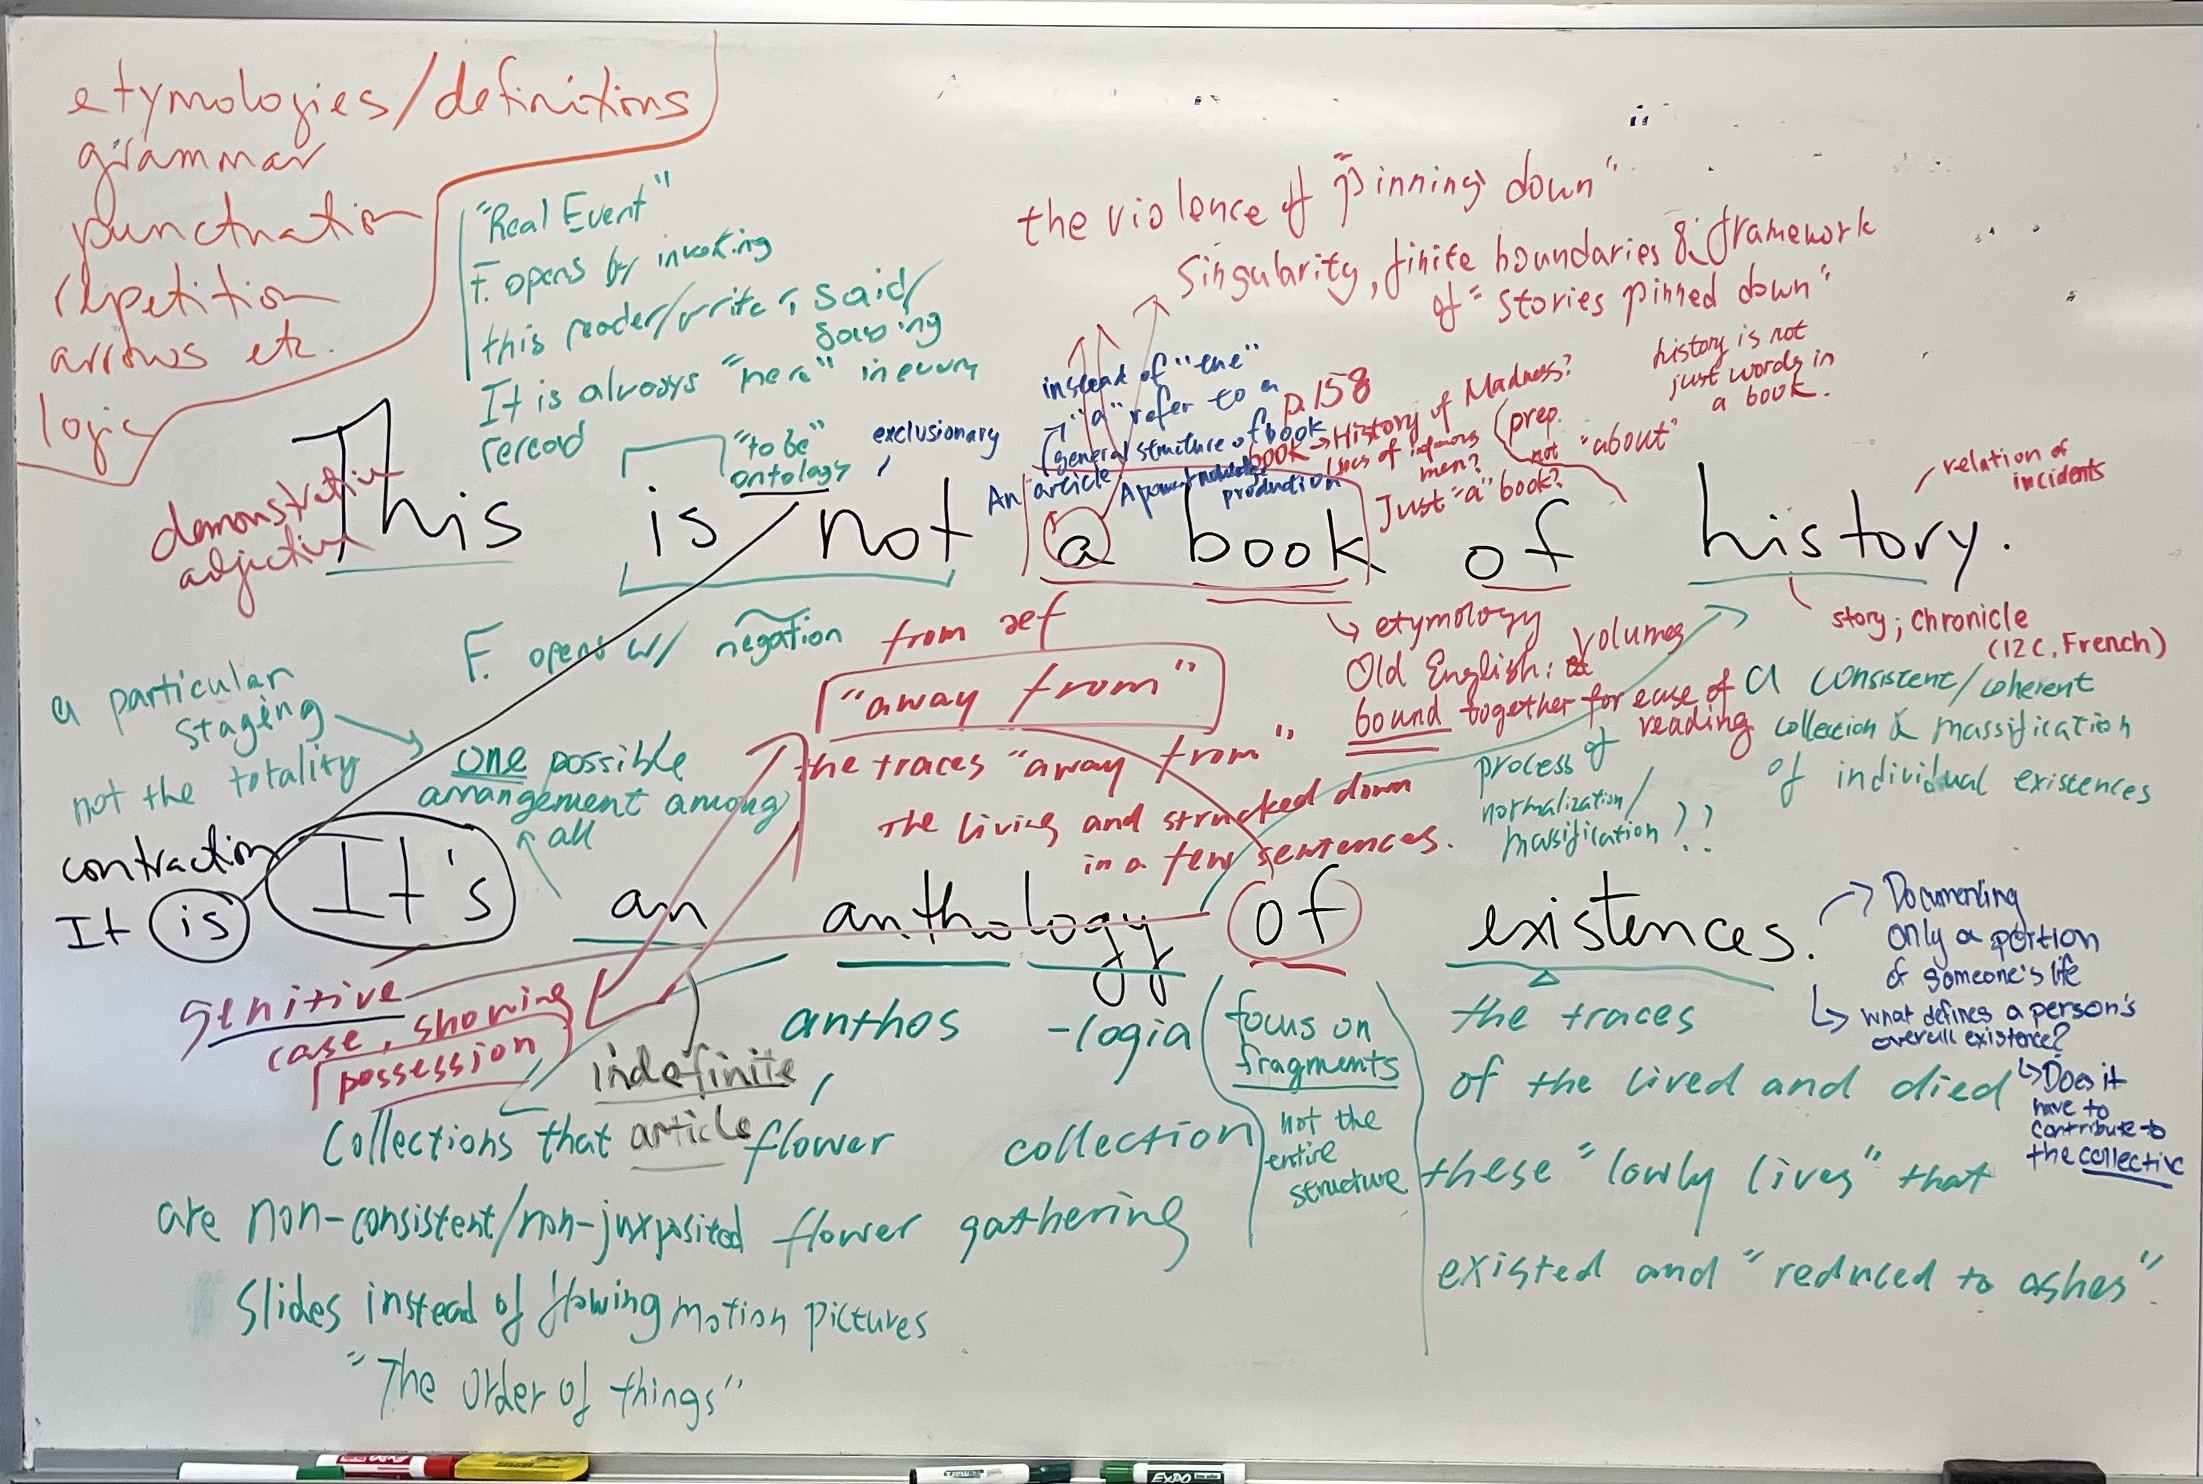 etymologies/definitions
grammar
punctuation
repetition
arrows etc.
logic
"Real Event"
F. opens by invoking
this reader/writer, said/
It is always "here" in every
record
the violence of "pinning down"
Singularity, finite boundaries & framework
of "stories pinned down"
history is not
just words in
a book.
instead of "the"
"a" refer to a
general structure of book
An article
production
p.158
book → History of Madness?
men?
Just "a" book?
(prep.
not "about"
relation of
incidents
"to be"
ontology
exclusionary
demonstrative
adjective
This is not a book of history.
F. opens w/ negation
from ref
"away from"
the traces "away from"
the living and strucked down
in a few sentences.
etymology
Old English: volumes
bound together for ease of
reading
story; chronicle
(12C, French)
a consistent/coherent
collection & massification
of individual existences
process of
normalization/
massification ??
a particular
staging
not the totality
one possible
arrangement among
all
contraction
It is
It's an anthology of existences.
Documenting
only a portion
of someone's life
what defines a person's
overall existence?
Does it
have to
contribute to
the collective
genitive
case, showing
possession
indefinite
article
anthos -logia
flower collection
flower gathering
focus on
fragments
not the
entire
structure
the traces
of the lived and died
these "lowly lives" that
existed and "reduced to ashes".
Collections that
are non-consistent/non-juxposited
Slides instead of flowing motion pictures
"The Order of things"
EXPO